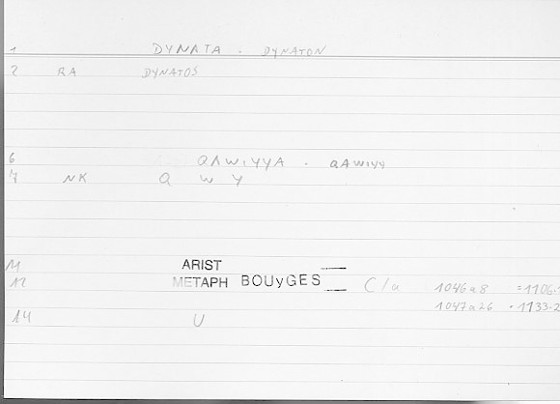 1 DYNATA . DYNATON
2 RA DYNATOS
6 QAWIYYA . QAWIYY
7 NK Q W Y
11 ARIST
12 METAPH BOUyGES C/a 1046a8 =1106.
1047a26 .1133-2
14 U